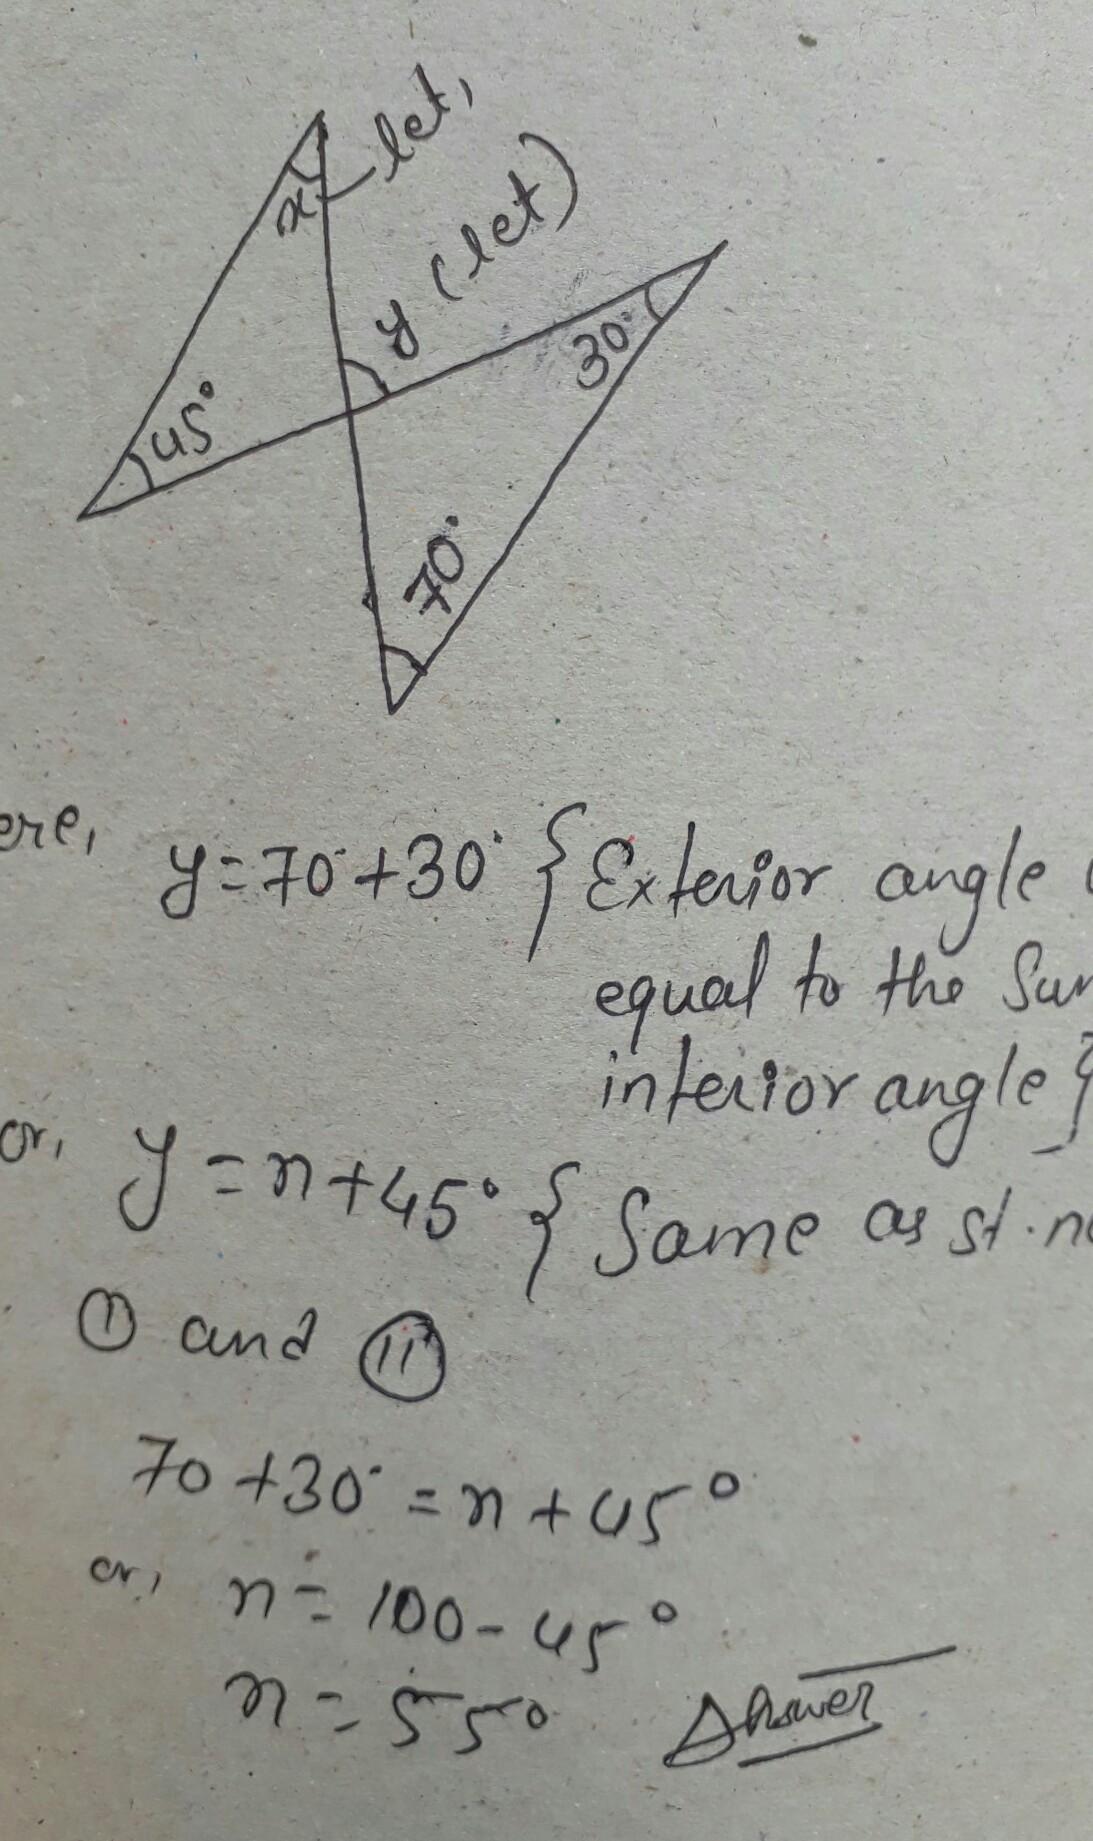 let,
x
y (let)
30°
45°
70°
y=70°+30° { Exterior angle
equal to the
interior angle }
or, y = n+45° { Same as st.
① and ⑪
70+30° = n+45°
or, n = 100-45°
n = 55° Answer